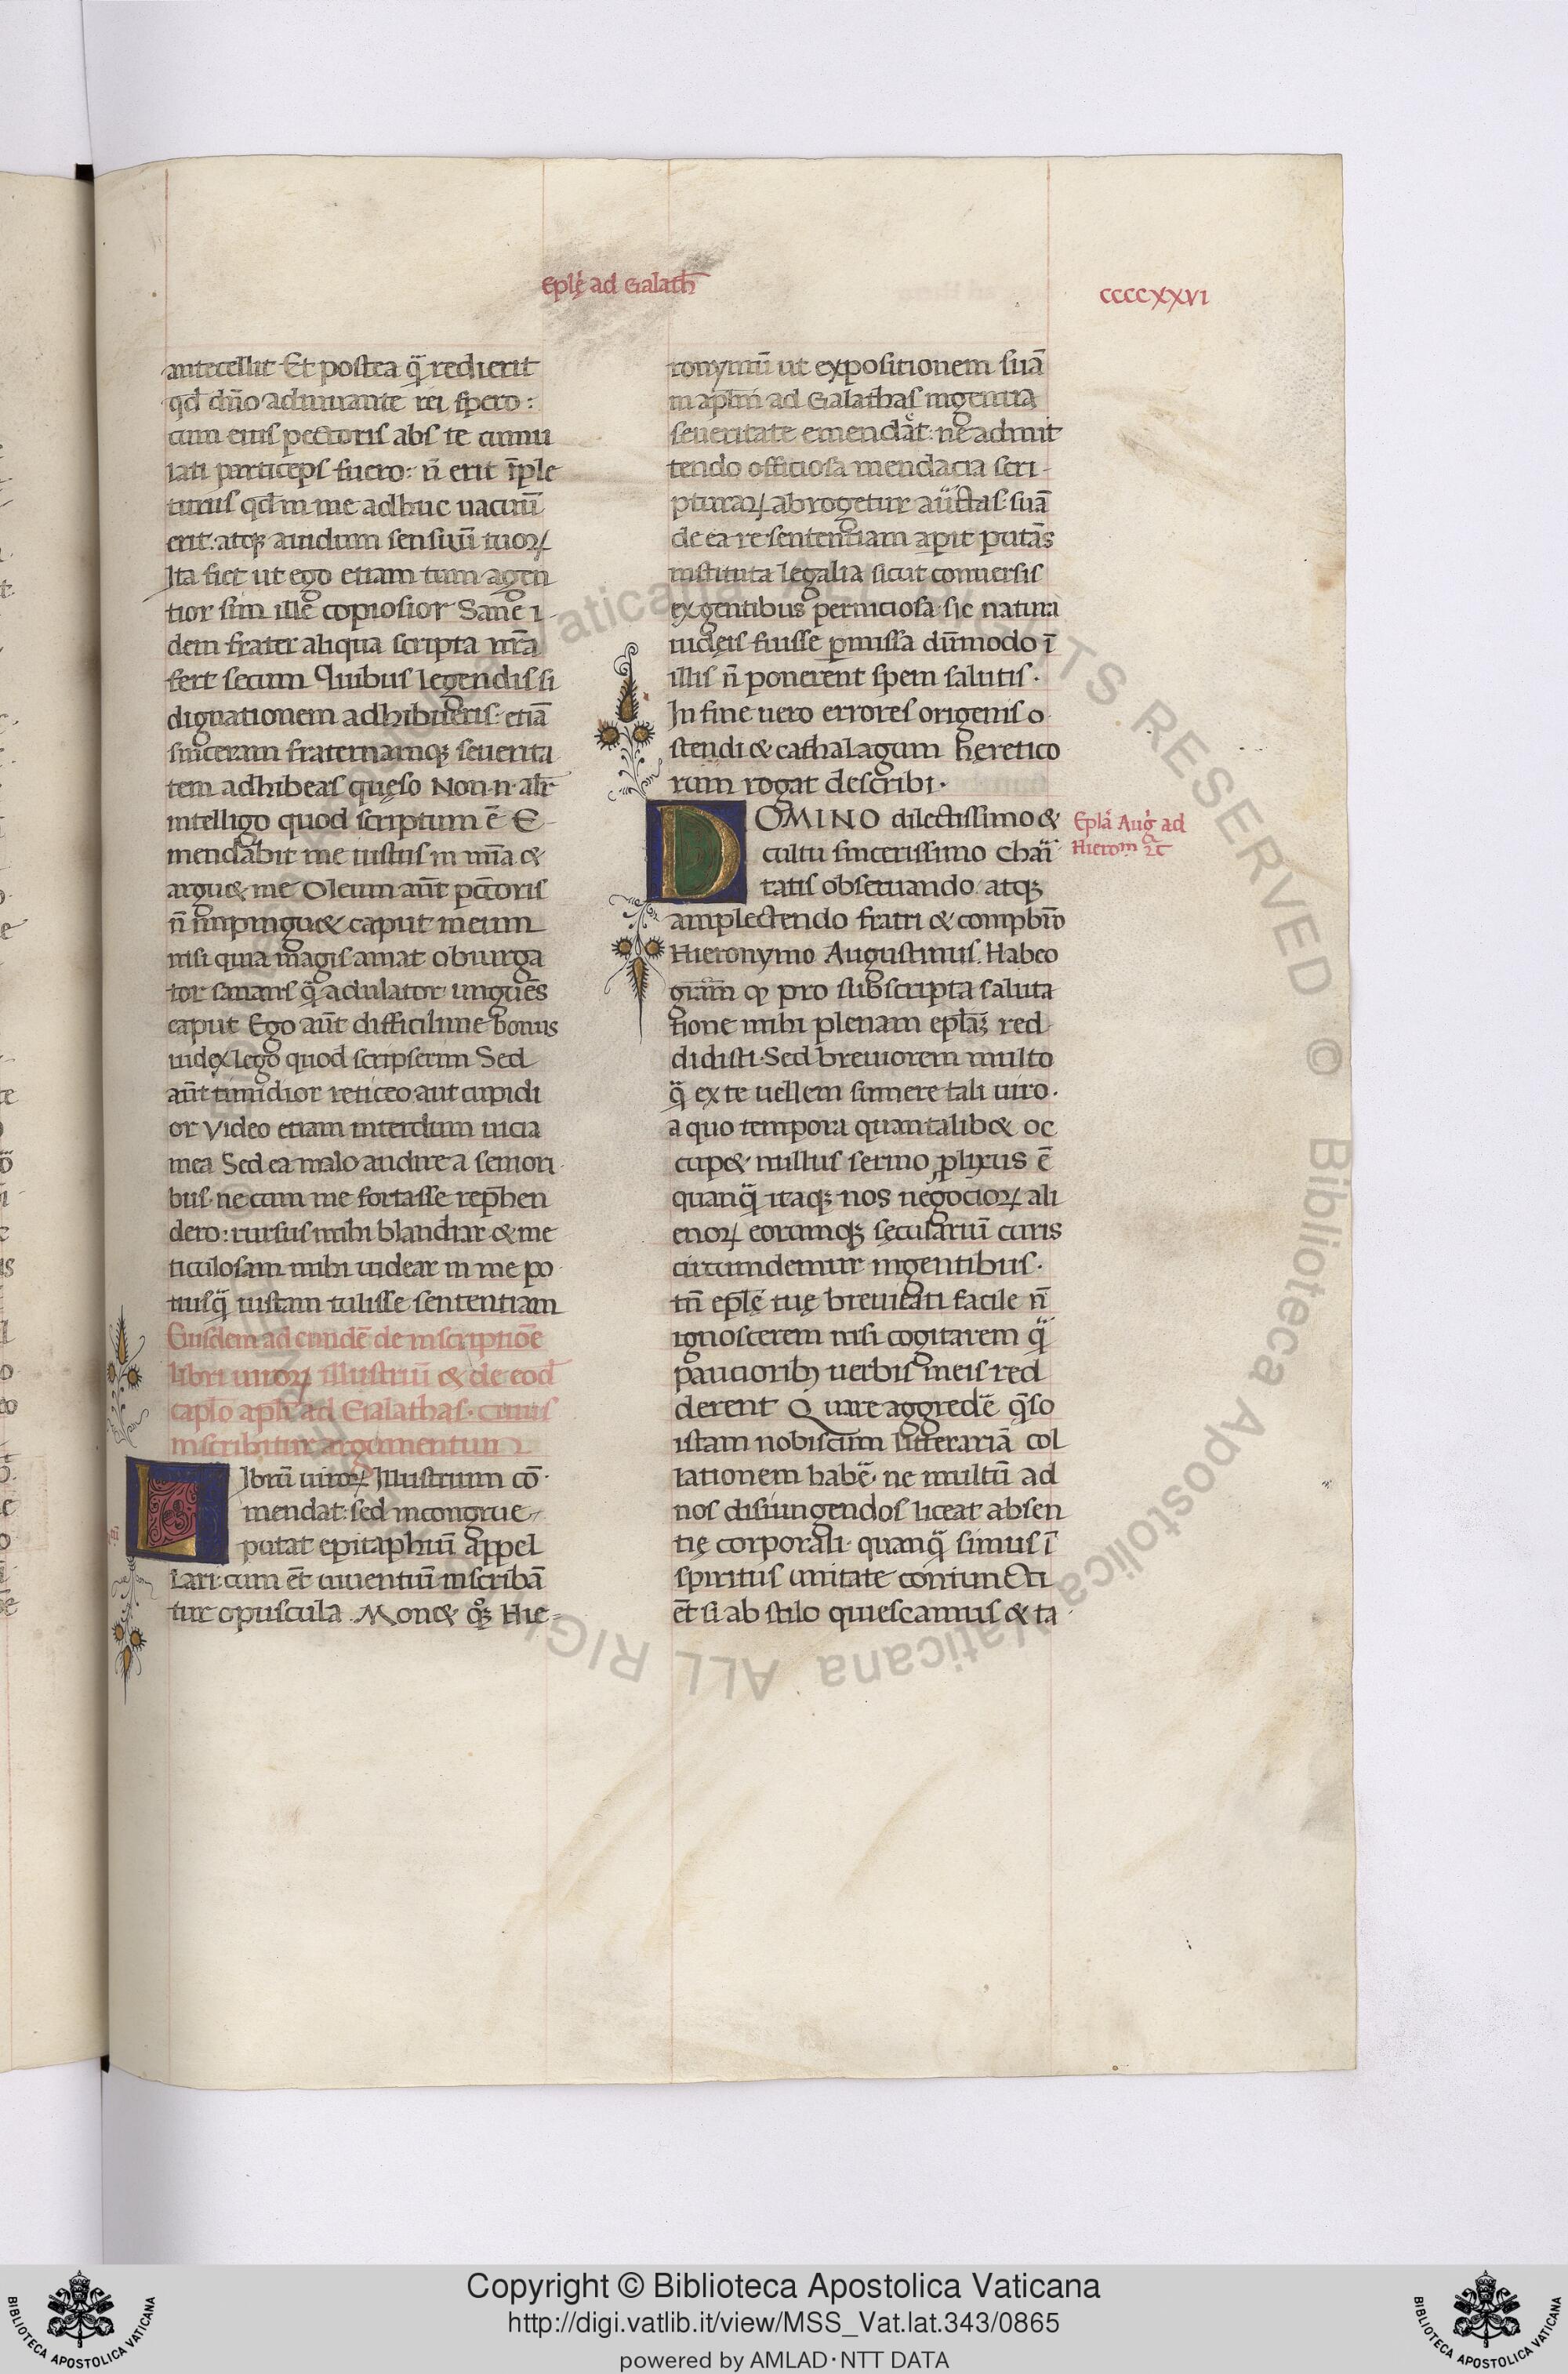 Eplę ad Galath̄
ccccxxvi
antecellit Et postea q̄ redierit
qd̄ dn̄o adiuuante rei spero:
cum eius pectoris abs te cumu
lati particeps fuero: n̄ erit īple
turus qd̄ in me adhuc uacuū
erit: atqꝫ auidum sensuū tuoꝝ
Ita fiet ut ego etiam tum agen
tior sim ille copiosior Sane i-
dem frater aliqua scripta nr̄a
fert secum Quibus legendis si
dignationem adhibueris: etiā
sinceram fraternamqꝫ seuerita
tem adhibeas quęso Non n̄ alr̄
intelligo quod scriptum ē E-
mendabit me iustus in mīa &
argu& me Oleum aūt pctōris
n̄ impingu& caput meum
nisi quia magis amat obiurga
tor sanans q̄ adulator ungues
caput Ego aūt difficilime bonus
iudex lego quod scripserim Sed
aūt timidior reticeo aut cupidi
or Video etiam interdum uicia
mea Sed ea malo audire a meliori-
bus ne cum me fortasse rep̄hen
dero: rursus mihi blandiar & me
ticulosam mihi uidear in me po-
tiusq̄ iustam tulisse sententiam
Eiusdem ad eundē de inscriptiōe
libri uiroꝝ illustriū & de eod̄
caplo apl̄i ad Galathas. cuius
inscribitur argumentum
Librū uiroꝝ Illustrium cō-
mendat: sed incongrue
putat epitaphiū appel
lari: cum et̄ uiuentiū inscribā
tur opuscula Mon& qꝫ Hie-
ronymū ut expositionem suā
in apl̄m ad Galathas ingenua
seueritate emendat: ne admit
tendo officiosa mendacia scri-
pturaꝝ abrogetur auctas: suā
de ea re sententiam apit putās
instituta legalia sicut conuersis
ex gentibus perniciosa sic natura
iudęis fuisse ꝑmissa dūmodo ī
illis n̄ ponerent spem salutis.
In fine uero errores origenis o
stendi & cathalagum hęretico
rum rogat describi.
DOMINO dilectissimo &
cultu sincerissimo chari
tatis obseruando atqꝫ
amplectendo fratri & compbr̄o
Hieronymo Augustinus. Habeo
gr̄am ꝙ pro subscripta saluta
tione mihi plenam epl̄aꝫ red-
didisti. Sed breuiorem multo
q̄ ex te uellem sumere tali uiro.
a quo tempora quantalib& oc
cup& nullus sermo ꝓlixus ē
quanq̄ itaqꝫ nos negocioꝝ ali
enoꝝ eorumqꝫ sęculariū curis
circundemur ingentibus.
tn̄ epl̄ę tuę breuitati facile n̄
ignoscerem nisi cogitarem q̄
paucioribꝫ uerbis meis red
derent Quare aggredē q̄so
istam nobiscum litterariā col
lationem habē ne multū ad
nos disiungendos liceat absen
tię corporali. quanq̄ simus ī
spiritus unitate coniuncti
et̄ si ab stilo quiescamus & ta
Eplā Auḡ ad
Hierom̄
Copyright © Biblioteca Apostolica Vaticana
http://digi.vatlib.it/view/MSS_Vat.lat.343/0865
powered by AMLAD·NTT DATA
BIBLIOTECA APOSTOLICA VATICANA
BIBLIOTECA APOSTOLICA VATICANA